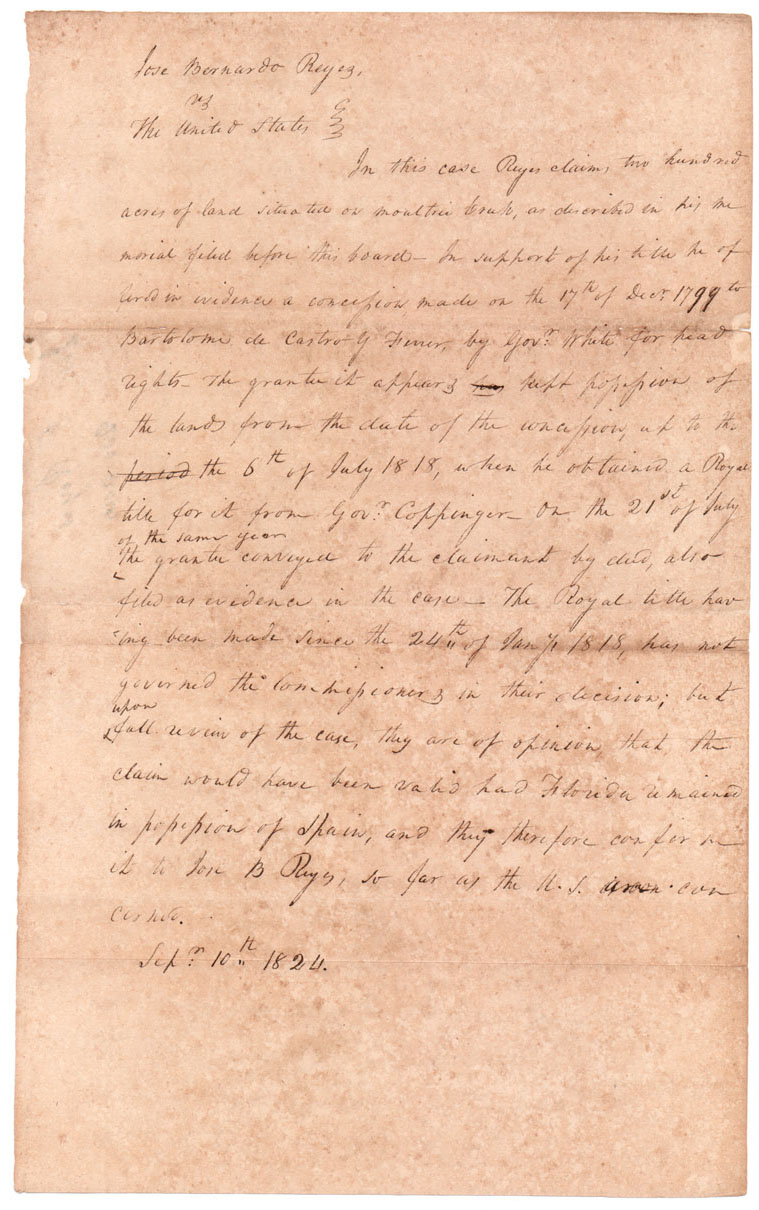 Jose Bernardo Reyes,
vs
The United States
In this case Reyes claims two hundred
acres of land situated on moultrie Creek, as described in his me
morial filed before this board – In support of his title he of
fered in evidence a concession made on the 17th of Decr. 1799 to
Bartolome de Castro y Ferrer, by Govr. White for head
rights – The grantee it appears has kept possession of
the lands from the date of the concession, up to the
period the 6th of July 1818, when he obtained a Royal
title for it from Govr. Coppinger – On the 21st of July
of the same year
the grantee conveyed to the claimant by deed, also
filed as evidence in the case – The Royal title hav
ing been made since the 24th of Jany. 1818, has not
governed the Commissioners in their decision; but
upon
full review of the case, they are of opinion, that, the
claim would have been valid had Florida remained
in possession of Spain, and they therefore confirm
it to Jose B Reyes, so far as the U. S. con
cerned.
Sepr. 10th 1824.